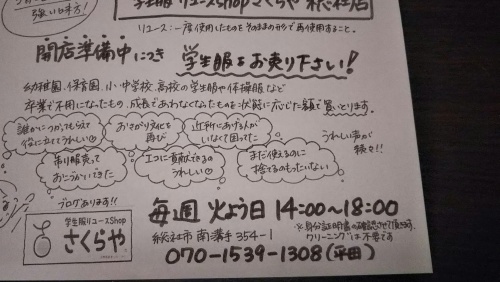 強い味方！
学生服 リユースShopさくらや 総社店
リユース：一度使用したものをそのままの形で再使用すること。
開店準備中につき 学生服をお売り下さい！
幼稚園、保育園、小・中学校、高校の学生服や体操服など
卒業で不用になったもの、成長であわなくなったものを状態に応じた額で買いとります。
誰かにつかってもらえて
役に立ててうれしい♡
おさがり文化を
再び
近所にあげる人が
いなくて困ってた
うれしい声が
続々!!
売り買えって
おこづかいできた
エコに貢献できるの
うれしい♡
まだ使えるのに
捨てるのもったいない
ブログあります!!
学生服リユースShop
さくらや
毎週 火よう日 14:00〜18:00
総社市 南溝手 354-1
※身分証明書の確認させて頂きます。
クリーニングは不要です
070-1539-1308 (平田)